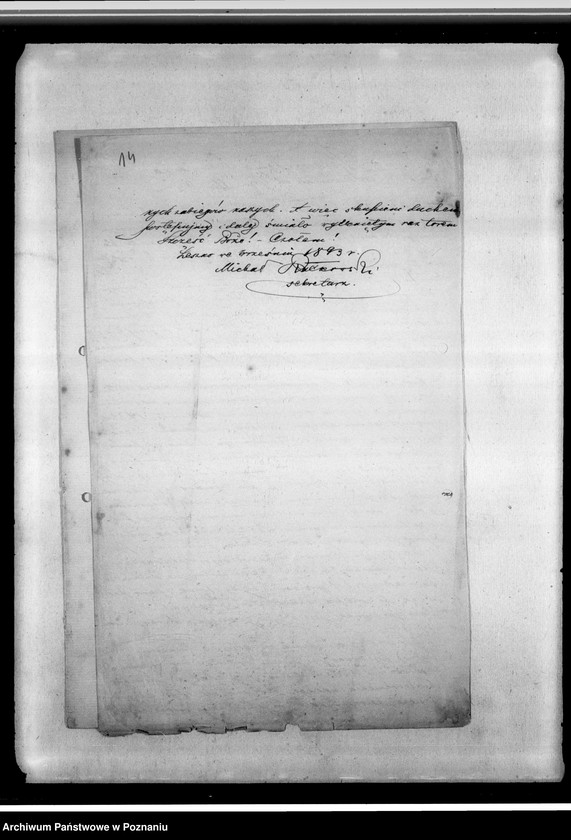 14
nych zabiegów naszych. A więc skupieni duchem
postępujmy i dalej śmiało wytkniętym raz torem
Szczęść Boże! - Czołem!
we wrześniu 1893 r.
Michał
sekretarz.
Archiwum Państwowe w Poznaniu